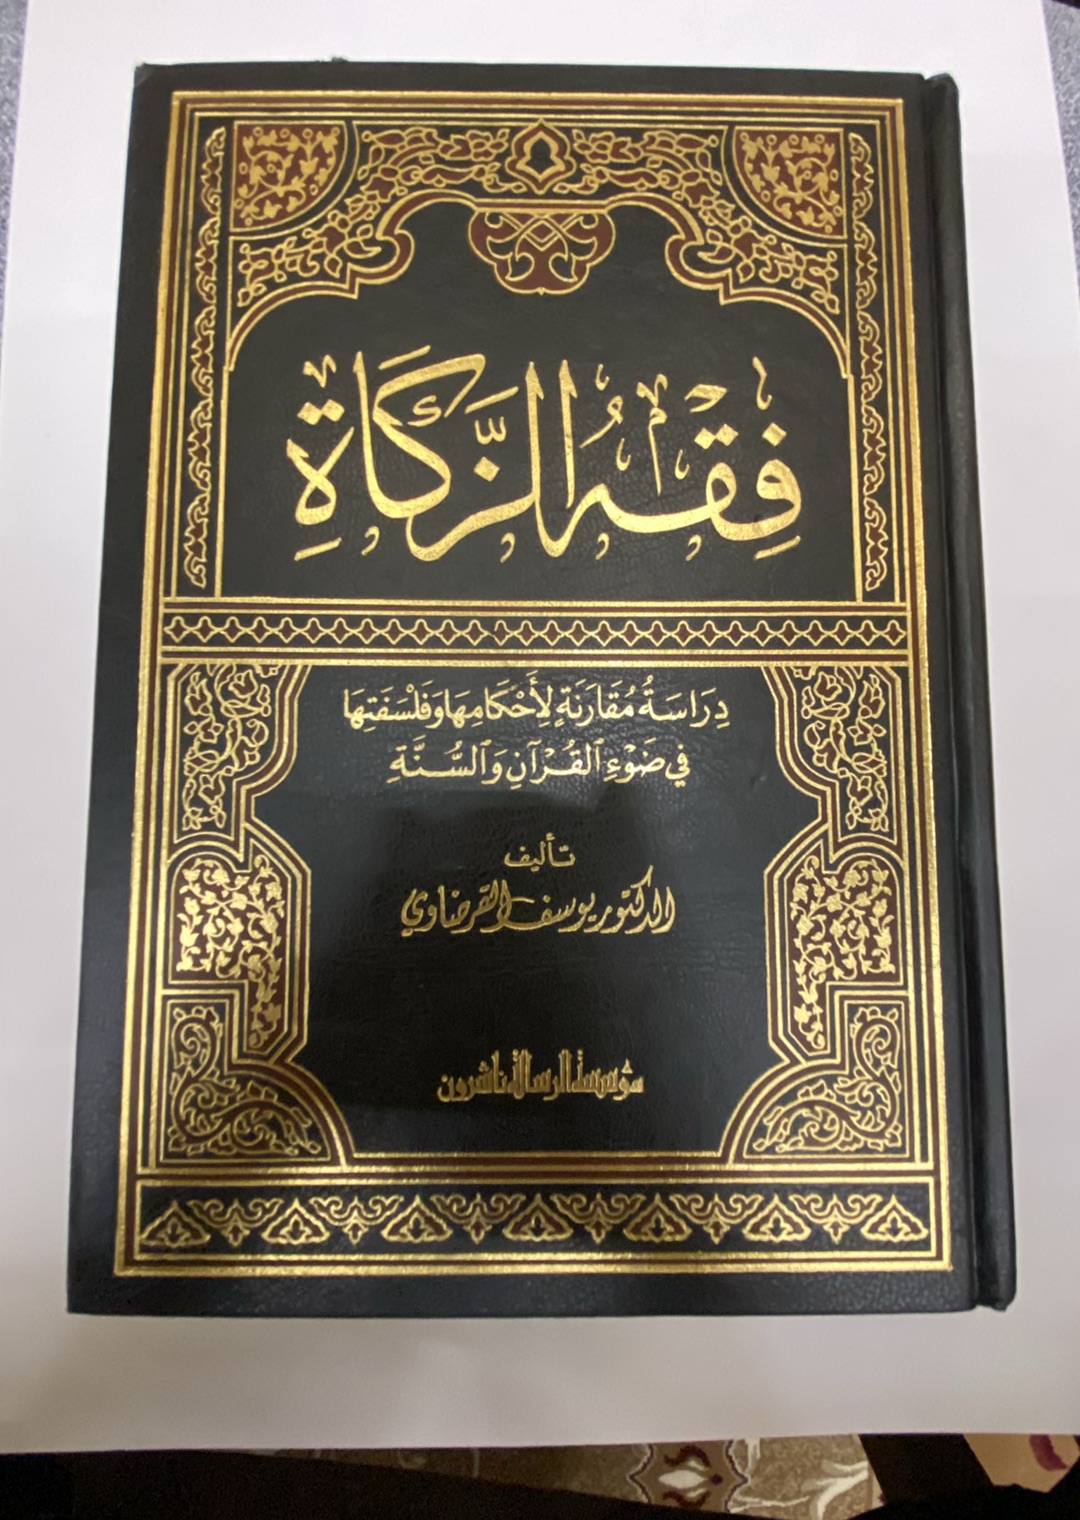 فِقْهُ الزَّكَاةِ
دِرَاسَةٌ مُقَارَنَةٌ لِأَحْكَامِهَا وَفَلْسَفَتِهَا
فِي ضَوْءِ ٱلقُرْآنِ وَٱلسُّنَّةِ
تأليف
الدكتور يوسف القرضاوي
مؤسسة الرسالة ناشرون